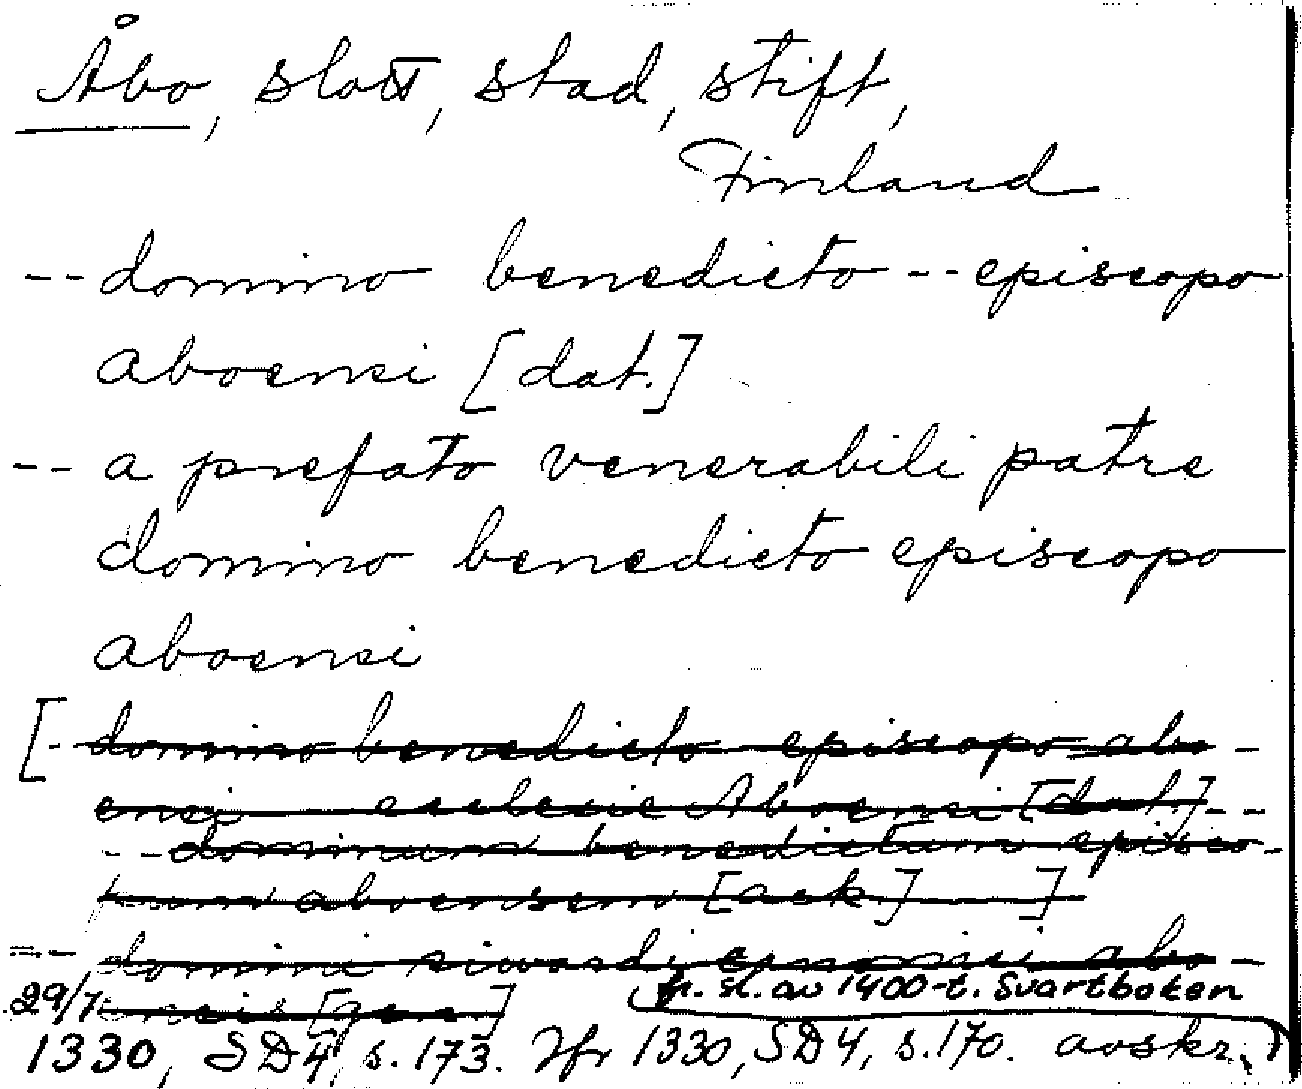 Åbo, slott, stad, stift,
Finland
-- domino benedicto -- episcopo
aboensi [dat.]
-- a prefato venerabili patre
domino benedicto episcopo
aboensi
[- domino benedicto episcopo abo-
ensi ecclesie Aboensi [dat.] --
-- dominum benedictum episco-
pum aboensem [ack.] ]
-- domini siwardi canonici abo-
ensis [gen.]
fr. sl. av 1400-t. Svartboken
29/7
1330, SD4, s. 173. Jfr 1330, SD4, s. 170. avskr.